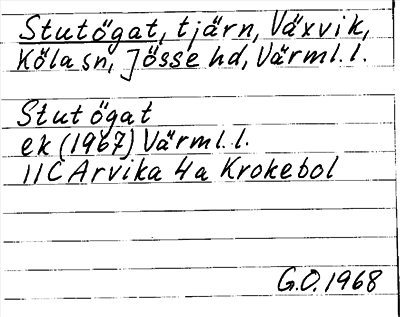 Stutögat, tjärn, Växvik,
Köla sn, Jösse hd, Värml. l.
Stutögat
ek (1967) Värml. l.
11C Arvika 4a Krokebol
G.O. 1968